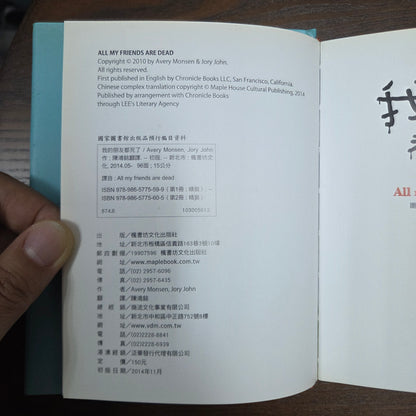 ALL MY FRIENDS ARE DEAD
Copyright © 2010 by Avery Monsen & Jory John.
All rights reserved.
First published in English by Chronicle Books LLC, San Francisco, California.
Chinese complex translation copyright © Maple House Cultural Publishing, 2014
Published by arrangement with Chronicle Books
through LEE's Literary Agency
國家圖書館出版品預行編目資料
我的朋友都死了 / Avery Monsen, Jory John
作 ; 陳鴻銘翻譯. -- 初版. -- 新北市 : 楓書坊文
化, 2014.05- 96面 ; 15公分
譯自 : All my friends are dead
ISBN 978-986-5775-59-9 (第1冊 : 精裝) --
ISBN 978-986-5775-60-5 (第2冊 : 精裝)
874.8 103005613
出　版／楓書坊文化出版社
地　址／新北市板橋區信義路163巷3號10樓
郵政劃撥／19907596 楓書坊文化出版社
網　址／www.maplebook.com.tw
電　話／(02) 2957-6096
傳　真／(02) 2957-6435
作　者／Avery Monsen, Jory John
翻　譯／陳鴻銘
總經銷／商流文化事業有限公司
地　址／新北市中和區中正路752號8樓
網　址／www.vdm.com.tw
電　話／(02) 2228-8841
傳　真／(02) 2228-6939
港澳經銷／泛華發行代理有限公司
定　價／150元
初版日期／2014年11月
我
All